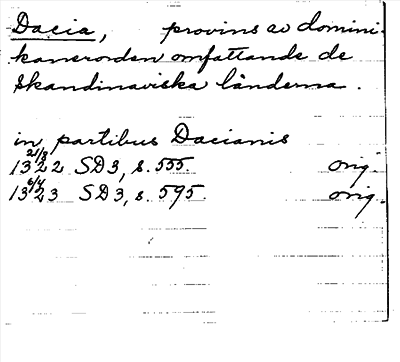 Dacia, provins av domini-
kanerorden omfattande de
skandinaviska länderna.
in partibus Dacianis
21/8
1322 SD3, s. 555. orig.
6/4
1323 SD3, s. 595. orig.